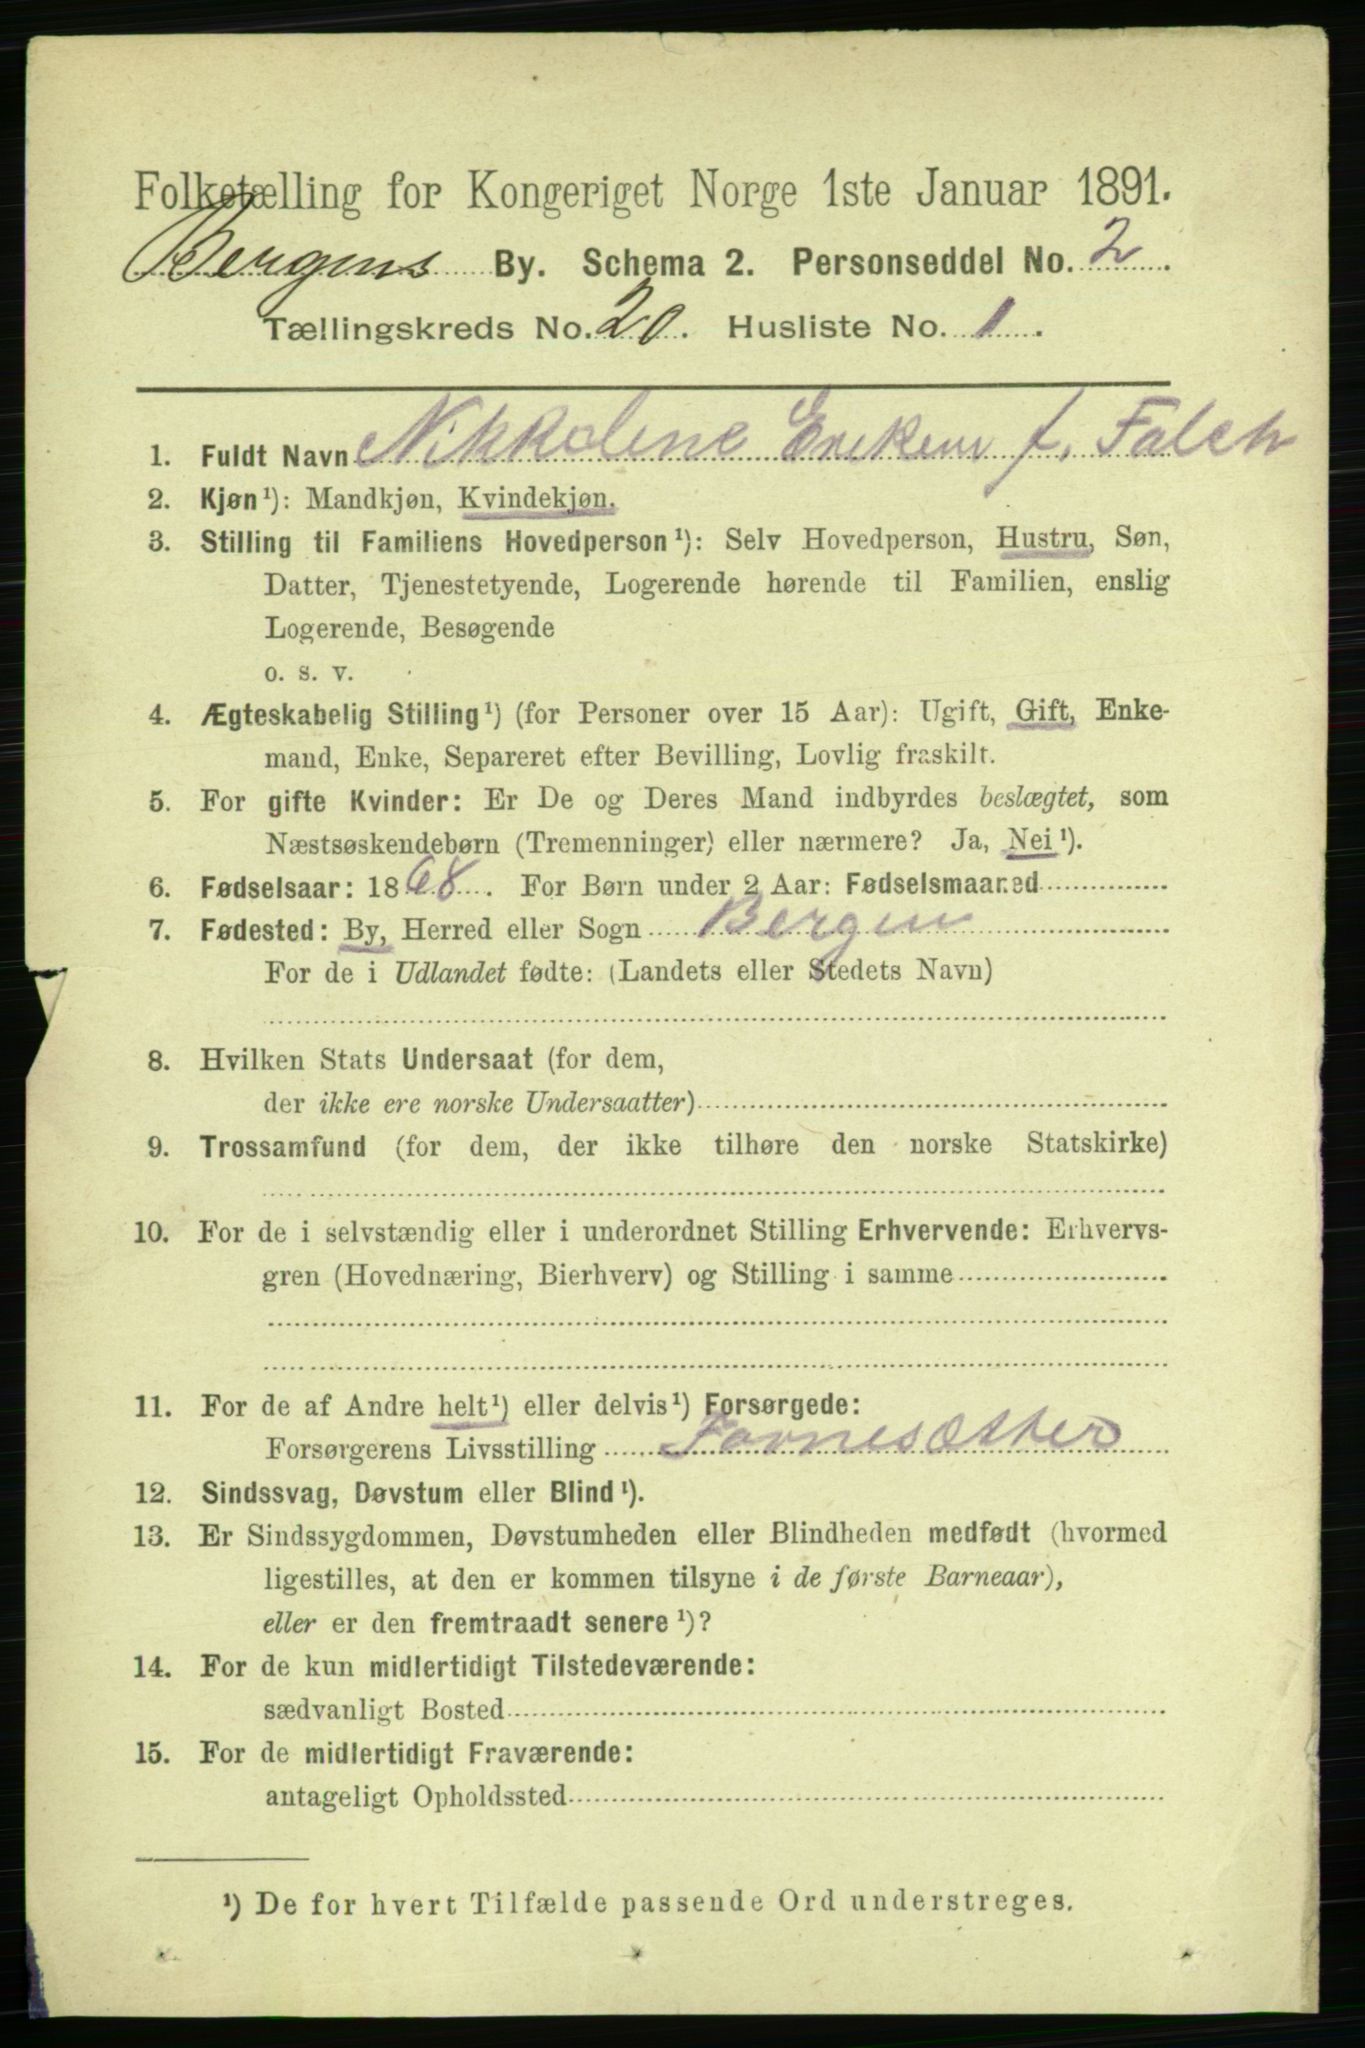 Folketælling for Kongeriget Norge 1ste Januar 1891.
Bergens By. Schema 2. Personseddel No. 2.
Tællingskreds No. 20. Husliste No. 1.
1. Fuldt Navn Nikkoline f. Falch
2. Kjøn¹): Mandkjøn, Kvindekjøn.
3. Stilling til Familiens Hovedperson¹): Selv Hovedperson, Hustru, Søn,
Datter, Tjenestetyende, Logerende hørende til Familien, enslig
Logerende, Besøgende
o. s. v.
4. Ægteskabelig Stilling¹) (for Personer over 15 Aar): Ugift, Gift, Enke-
mand, Enke, Separeret efter Bevilling, Lovlig fraskilt.
5. For gifte Kvinder: Er De og Deres Mand indbyrdes beslægtet, som
Næstsøskendebørn (Tremenninger) eller nærmere? Ja, Nei¹).
6. Fødselsaar: 1868. For Børn under 2 Aar: Fødselsmaaned
7. Fødested: By, Herred eller Sogn Bergen
For de i Udlandet fødte: (Landets eller Stedets Navn)
8. Hvilken Stats Undersaat (for dem,
der ikke ere norske Undersaatter)
9. Trossamfund (for dem, der ikke tilhøre den norske Statskirke)
10. For de i selvstændig eller i underordnet Stilling Erhvervende: Erhvervs-
gren (Hovednæring, Bierhverv) og Stilling i samme
11. For de af Andre helt¹) eller delvis¹) Forsørgede:
Forsørgerens Livsstilling
12. Sindssvag, Døvstum eller Blind¹).
13. Er Sindssygdommen, Døvstumheden eller Blindheden medfødt (hvormed
ligestilles, at den er kommen tilsyne i de første Barneaar),
eller er den fremtraadt senere¹)?
14. For de kun midlertidigt Tilstedeværende:
sædvanligt Bosted
15. For de midlertidigt Fraværende:
antageligt Opholdssted
¹) De for hvert Tilfælde passende Ord understreges.